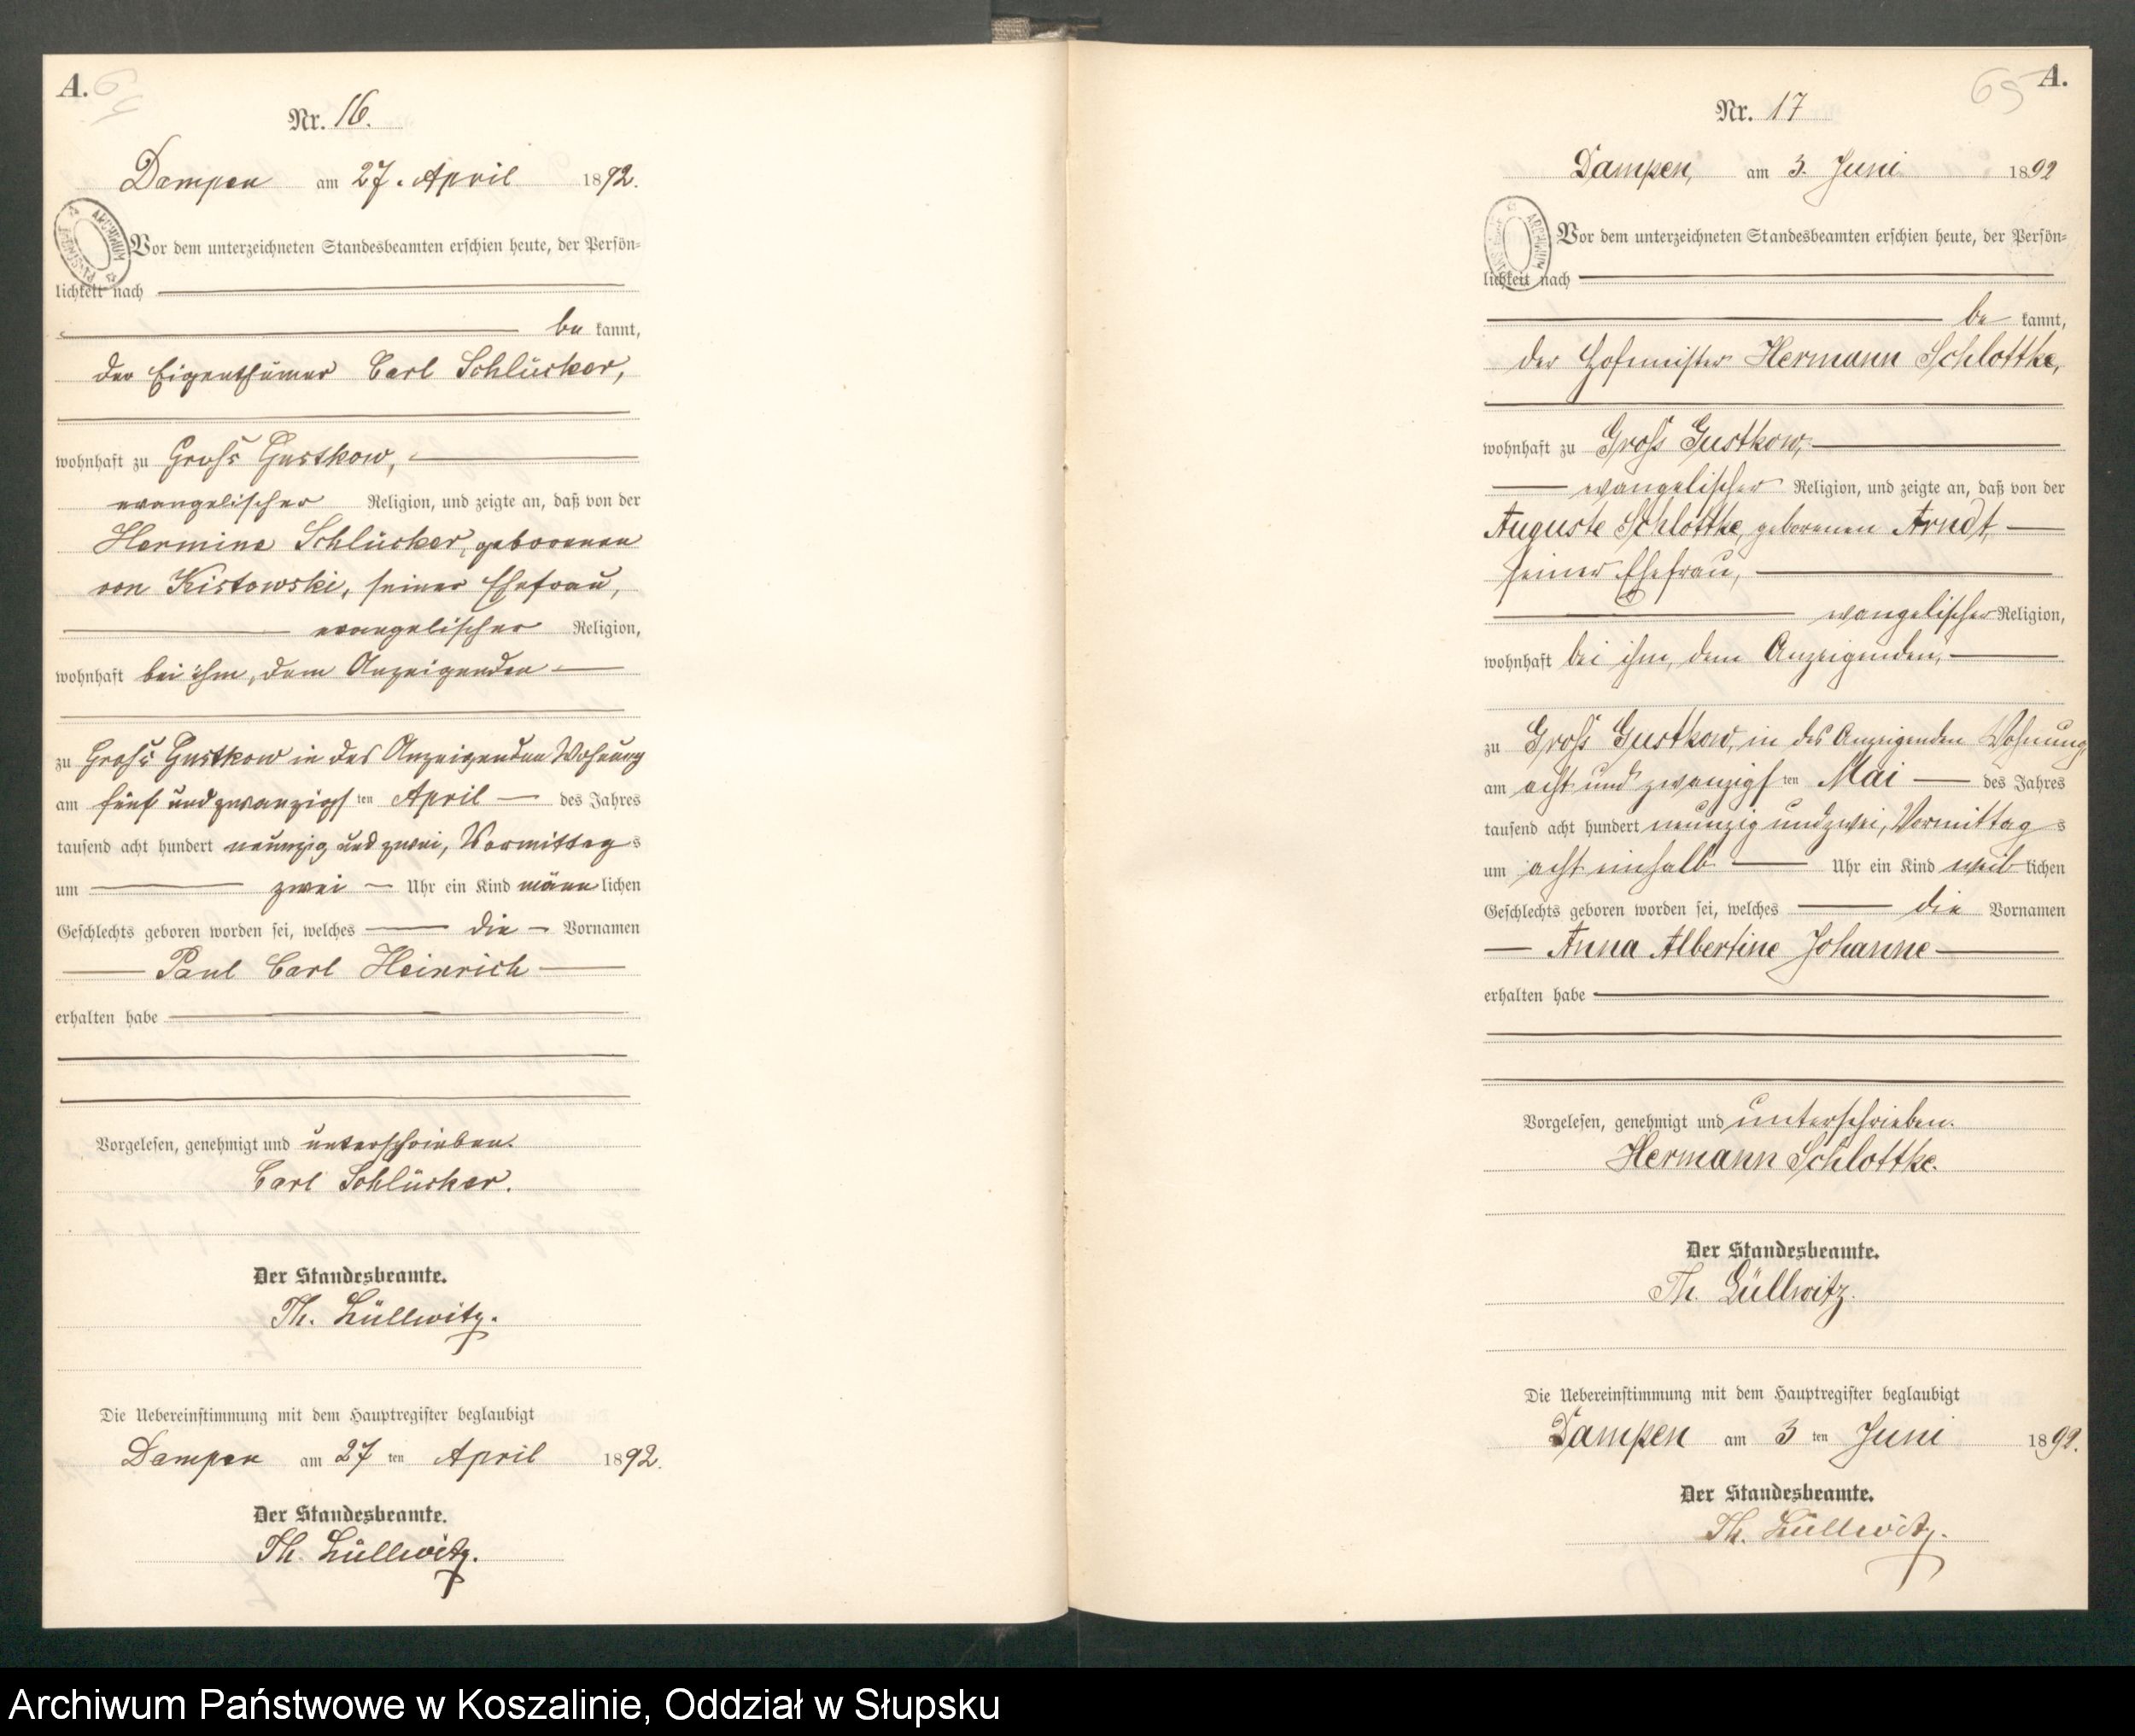 A.
Nr. 16.
Dampen am 27. April 1892.
Vor dem unterzeichneten Standesbeamten erschien heute, der Persön-
lichkeit nach
be kannt,
der Eigenthümer Carl Schlücker,
wohnhaft zu Gross Gustkow,
evangelischer Religion, und zeigte an, daß von der
Hermine Schlücker, geborenen
von Kistowski, seiner Ehefrau,
evangelischer Religion,
wohnhaft bei ihm, dem Anzeigenden
zu Gross Gustkow in des Anzeigenden Wohnung
am fünf und zwanzigsten April des Jahres
tausend acht hundert neunzig und zwei, Vormittags
um zwei Uhr ein Kind männlichen
Geschlechts geboren worden sei, welches die Vornamen
Paul Carl Heinrich
erhalten habe
Vorgelesen, genehmigt und unterschrieben.
Carl Schlücker.
Der Standesbeamte.
Th. Lüllwitz.
Die Uebereinstimmung mit dem Hauptregister beglaubigt
Dampen am 27 ten April 1892.
Der Standesbeamte.
Th. Lüllwitz.
65 A.
Nr. 17
Dampen, am 3. Juni 1892
Vor dem unterzeichneten Standesbeamten erschien heute, der Persön-
lichkeit nach
be kannt,
der Hofmeister Hermann Schlottke,
wohnhaft zu Gross Gustkow,
evangelischer Religion, und zeigte an, daß von der
Auguste Schlottke, geborenen Arndt,
seiner Ehefrau,
evangelischer Religion,
wohnhaft bei ihm, dem Anzeigenden,
zu Gross Gustkow, in des Anzeigenden Wohnung,
am acht und zwanzigsten Mai des Jahres
tausend acht hundert neunzig und zwei, Vormittags
um acht einhalb Uhr ein Kind weiblichen
Geschlechts geboren worden sei, welches die Vornamen
Anna Albertine Johanne
erhalten habe
Vorgelesen, genehmigt und unterschrieben.
Hermann Schlottke.
Der Standesbeamte.
Th. Lüllwitz.
Die Uebereinstimmung mit dem Hauptregister beglaubigt
Dampen am 3 ten Juni 1892.
Der Standesbeamte.
Th. Lüllwitz.
Archiwum Państwowe w Koszalinie, Oddział w Słupsku